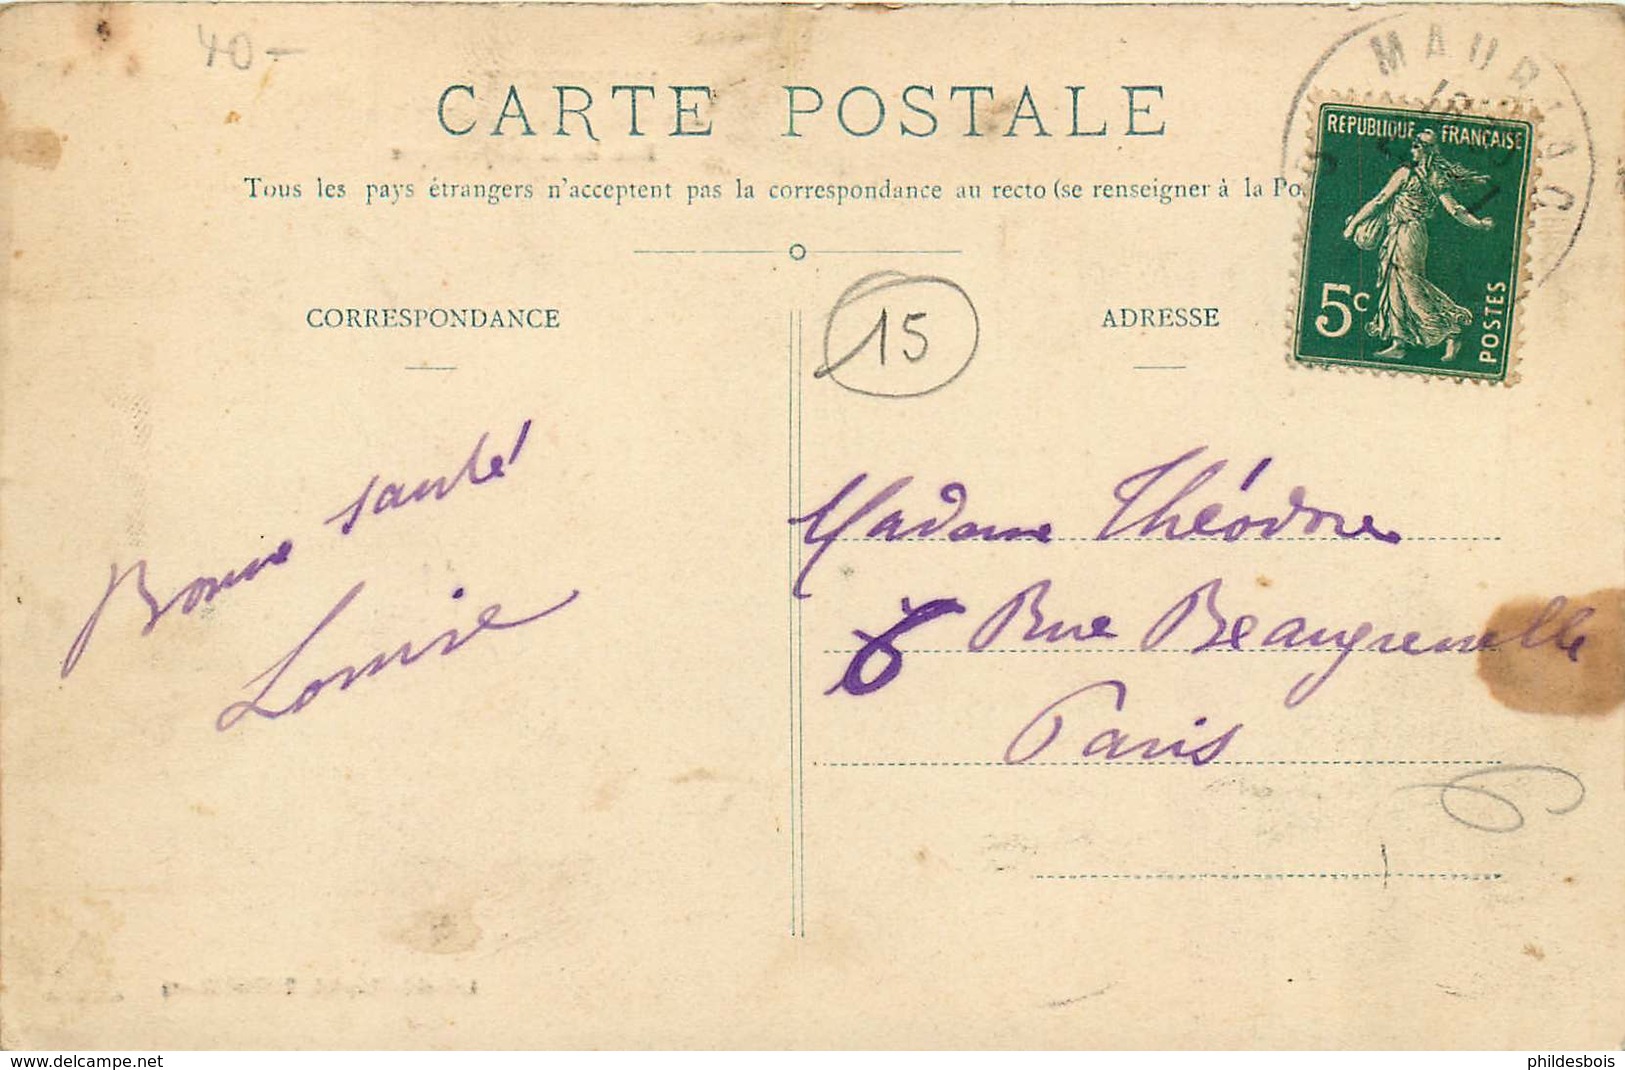 40-
CARTE POSTALE
Tous les pays étrangers n'acceptent pas la correspondance au recto (se renseigner à la Po
MAURIAC
REPUBLIQUE FRANÇAISE
5c
POSTES
CORRESPONDANCE
15
ADRESSE
Bonne santé
Louise
Madame Théodore
6 Rue Beaugrenelle
Paris
www.delcampe.net
phildesbois